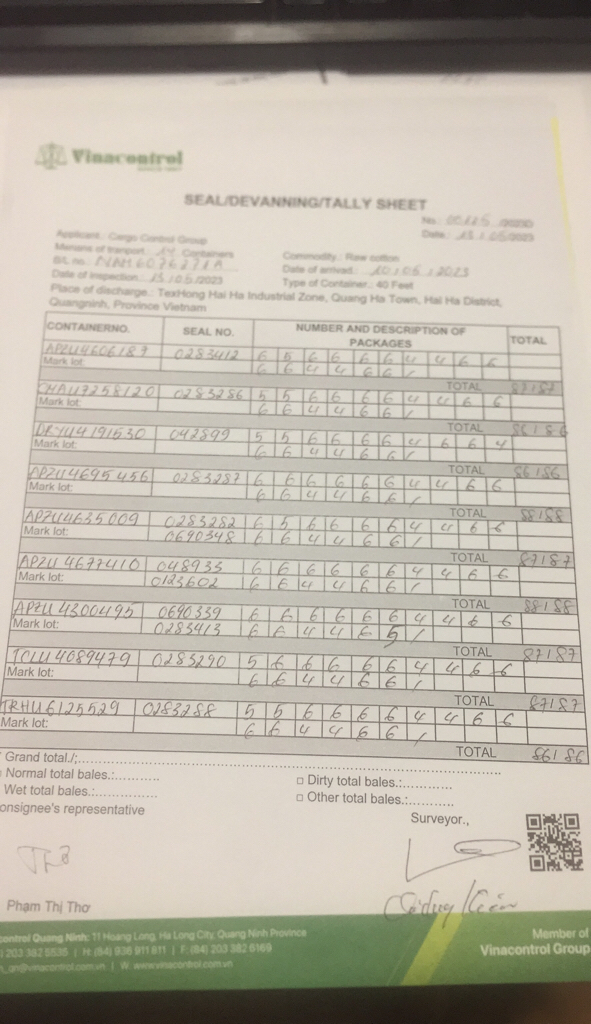 Vinacontrol
SEAL/DEVANNING/TALLY SHEET
No.: 00125 /2023D
Date.: 15/05/2023
Applicant.: Cargo Control Group
Means of tranport.: 14 Containers
Commodity.: Raw cotton
B/L no.: NAM6076271A
Date of arrived.: 10/05/2023
Date of inspection.: 15/05/2023
Type of Container.: 40 Feet
Place of discharge.: TexHong Hai Ha Industrial Zone, Quang Ha Town, Hai Ha District,
Quangninh, Province Vietnam
CONTAINERNO. SEAL NO. NUMBER AND DESCRIPTION OF PACKAGES TOTAL
APZU4606187 0283412 6 5 6 6 6 6 4 4 6 6
Mark lot: 6 6 4 4 6 6 /
TOTAL 87/87
CHAU7258120 0283286 5 5 6 6 6 6 4 4 6 6
Mark lot: 6 6 4 4 6 6 /
TOTAL 86/86
DRYU4191530 042899 5 5 6 6 6 6 4 6 6 4
Mark lot: 6 6 4 4 6 6 /
TOTAL 86/86
APZU4695456 0283287 6 6 6 6 6 6 4 4 6 6
Mark lot: 6 6 4 4 6 6 /
TOTAL 88/88
APZU4635009 0283282 6 5 6 6 6 6 4 4 6 6
Mark lot: 0690348 6 6 4 4 6 6 /
TOTAL 87/87
APZU4677410 048933 6 6 6 6 6 6 4 4 6 6
Mark lot: 0123602 6 6 4 4 6 6 /
TOTAL 88/88
APZU4300495 0690339 6 6 6 6 6 6 4 4 6 6
Mark lot: 0283413 6 6 4 4 6 5 /
TOTAL 87/87
TCLU4089479 0283290 5 6 6 6 6 6 4 4 6 6
Mark lot: 6 6 4 4 6 6 /
TOTAL 87/87
TRHU6125529 0283288 5 5 6 6 6 6 4 4 6 6
Mark lot: 6 6 4 4 6 6 /
TOTAL 86/86
Grand total./:
Normal total bales.:............
□ Dirty total bales.:............
Wet total bales.:...............
□ Other total bales.:............
onsignee's representative
Surveyor.,
Thơ
Phạm Thị Thơ
control Quang Ninh: 11 Hoang Long, Ha Long City, Quang Ninh Province
203 382 5535 | H: (84) 936 911 811 | F: (84) 203 382 6169
_qn@vinacontrol.com.vn | W: www.vinacontrol.com.vn
Member of
Vinacontrol Group